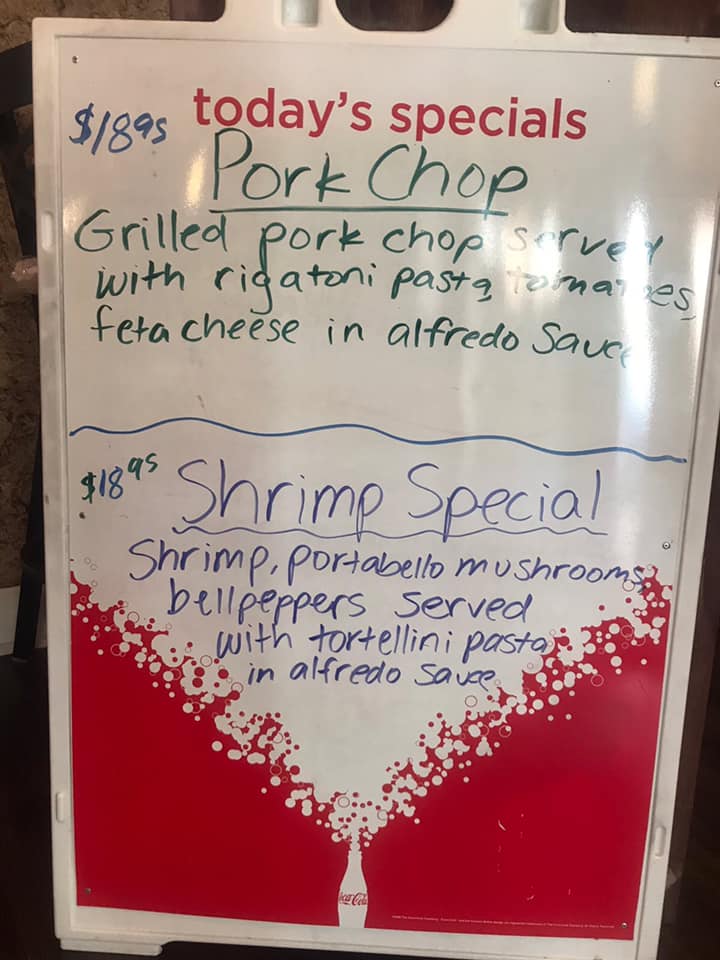 today's specials
$18.95
Pork Chop
Grilled pork chop served
with rigatoni pasta, tomatoes,
feta cheese in alfredo sauce
$18.95
Shrimp Special
Shrimp, portabello mushrooms,
bellpeppers served
with tortellini pasta
in alfredo sauce
Coca-Cola